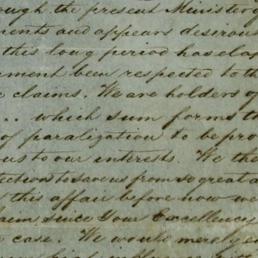 ough the present Minister of
ments and appears desirous
this long period has elap
ernment been respected to th
e claims. We are holders of
... which sum forms th
of paralization to be pro
us to our interests. We the
tection to save us from so great a
this affair before now we
laim since Your Excellences
e case. We would merely